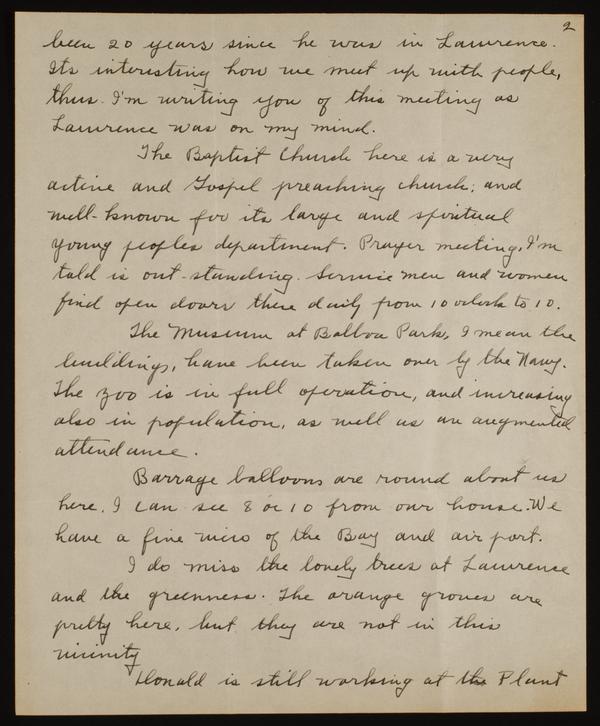 2
been 20 years since he was in Lawrence.
Its interesting how we meet up with people,
thus. I'm writing you of this meeting as
Lawrence was on my mind.
The Baptist Church here is a very
active and Gospel preaching church; and
well-known for its large and spiritual
young peoples department. Prayer meeting, I'm
told is out-standing. Service men and women
find open doors there daily from 10 oclock to 10.
The Museum at Balboa Park, I mean the
buildings, have been taken over by the Navy.
The zoo is in full operation, and increasing
also in population, as well as an augmented
attendance.
Barrage balloons are round about us
here. I can see 8 or 10 from our house. We
have a fine view of the Bay and air port.
I do miss the lovely trees at Lawrence
and the greenness. The orange groves are
pretty here, but they are not in this
vicinity
Donald is still working at the Plant